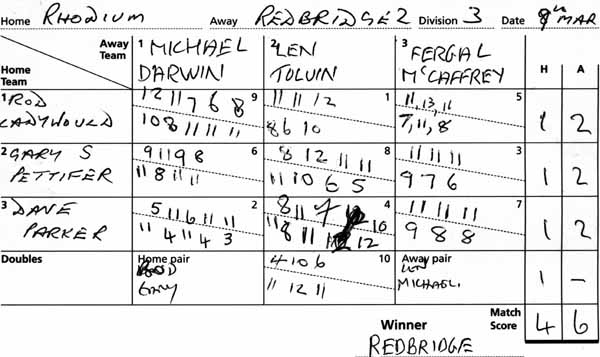 Home RHODIUM Away REDBRIDGE 2 Division 3 Date 9th MAR
Away Team 1 MICHAEL DARWIN 2 LEN TOLUIN 3 FERGAL McCAFFREY H A
Home Team
1 ROD LADYWOULD
12 11 7 6 8 9
10 8 11 11 11
11 11 12 1
8 6 10
11, 13, 11 5
7, 11, 8
1 2
2 GARY S PETTIFER
9 11 9 8 6
11 8 11 11
8 12 11 11 8
11 10 6 5
11 11 11 3
9 7 6
1 2
3 DANE PARKER
5 11 6 11 11 2
11 4 11 4 3
8 11 7 10 4
11 8 11 12
11 11 11 7
9 8 8
1 2
Doubles Home pair ROD GARY
4 10 6 10
11 12 11
Away pair LEN MICHAEL.
1 -
Winner REDBRIDGE
Match Score 4 6